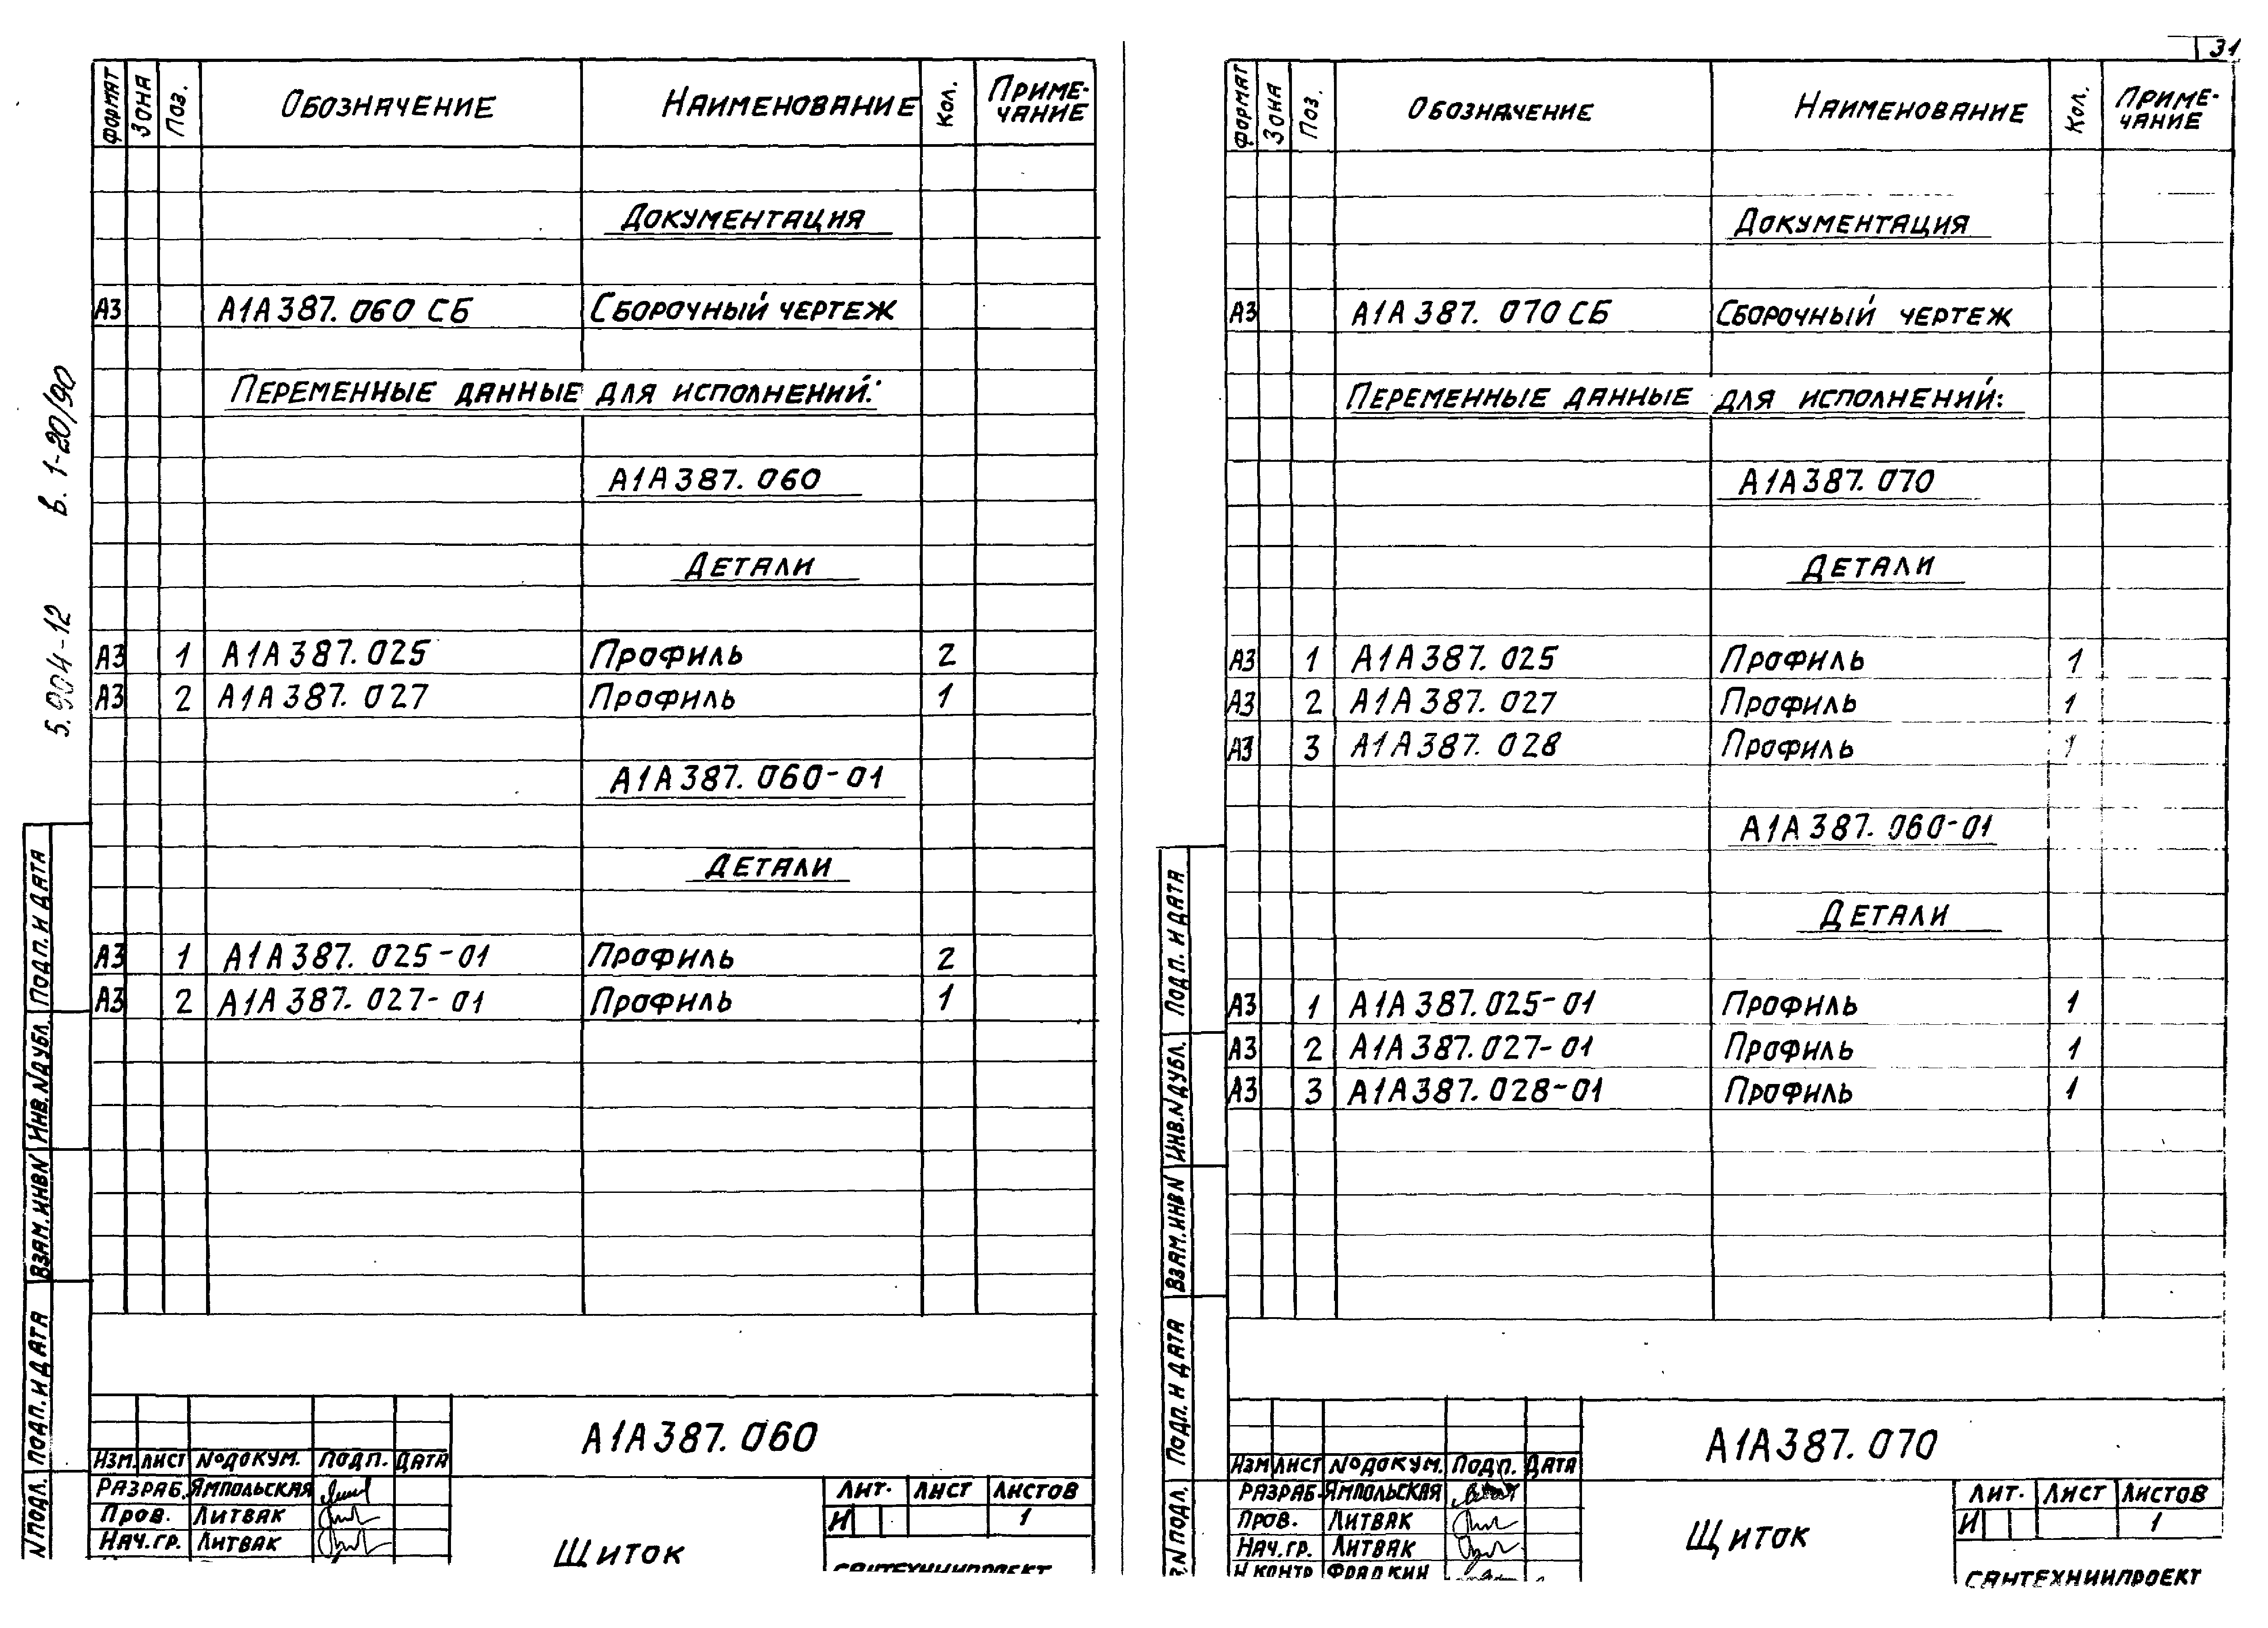 31
ФОРМАТ ЗОНА ПОЗ. ОБОЗНАЧЕНИЕ НАИМЕНОВАНИЕ КОЛ. ПРИМЕ-
ЧАНИЕ
ДОКУМЕНТАЦИЯ
А3 А1А387.060 СБ СБОРОЧНЫЙ ЧЕРТЕЖ
ПЕРЕМЕННЫЕ ДАННЫЕ ДЛЯ ИСПОЛНЕНИЙ:
А1А387.060
ДЕТАЛИ
А3 1 А1А387.025 ПРОФИЛЬ 2
А3 2 А1А387.027 ПРОФИЛЬ 1
А1А387.060-01
ДЕТАЛИ
А3 1 А1А387.025-01 ПРОФИЛЬ 2
А3 2 А1А387.027-01 ПРОФИЛЬ 1
5.904-12 в. 1-20/90
ПОДП. И ДАТА
ИНВ.N ДУБЛ.
ВЗАМ.ИНВN
ПОДП. И ДАТА
N ПОДЛ.
А1А387.060
ИЗМ. ЛИСТ №ДОКУМ. ПОДП. ДАТА
РАЗРАБ. ЯМПОЛЬСКАЯ
ПРОВ. ЛИТВАК
НАЧ.ГР. ЛИТВАК
ЩИТОК
ЛИТ. ЛИСТ ЛИСТОВ
И 1
САНТЕХНИИПРОЕКТ
ФОРМАТ ЗОНА ПОЗ. ОБОЗНАЧЕНИЕ НАИМЕНОВАНИЕ КОЛ. ПРИМЕ-
ЧАНИЕ
ДОКУМЕНТАЦИЯ
А3 А1А387.070 СБ СБОРОЧНЫЙ ЧЕРТЕЖ
ПЕРЕМЕННЫЕ ДАННЫЕ ДЛЯ ИСПОЛНЕНИЙ:
А1А387.070
ДЕТАЛИ
А3 1 А1А387.025 ПРОФИЛЬ 1
А3 2 А1А387.027 ПРОФИЛЬ 1
А3 3 А1А387.028 ПРОФИЛЬ 1
А1А387.060-01
ДЕТАЛИ
А3 1 А1А387.025-01 ПРОФИЛЬ 1
А3 2 А1А387.027-01 ПРОФИЛЬ 1
А3 3 А1А387.028-01 ПРОФИЛЬ 1
ПОДП. И ДАТА
ИНВ.N ДУБЛ.
ВЗАМ.ИНВN
ПОДП. И ДАТА
N ПОДЛ.
А1А387.070
ИЗМ ЛИСТ №ДОКУМ. ПОДП. ДАТА
РАЗРАБ. ЯМПОЛЬСКАЯ
ПРОВ. ЛИТВАК
НАЧ.ГР. ЛИТВАК
Н КОНТР ФРАДКИН
ЩИТОК
ЛИТ. ЛИСТ ЛИСТОВ
И 1
САНТЕХНИИПРОЕКТ